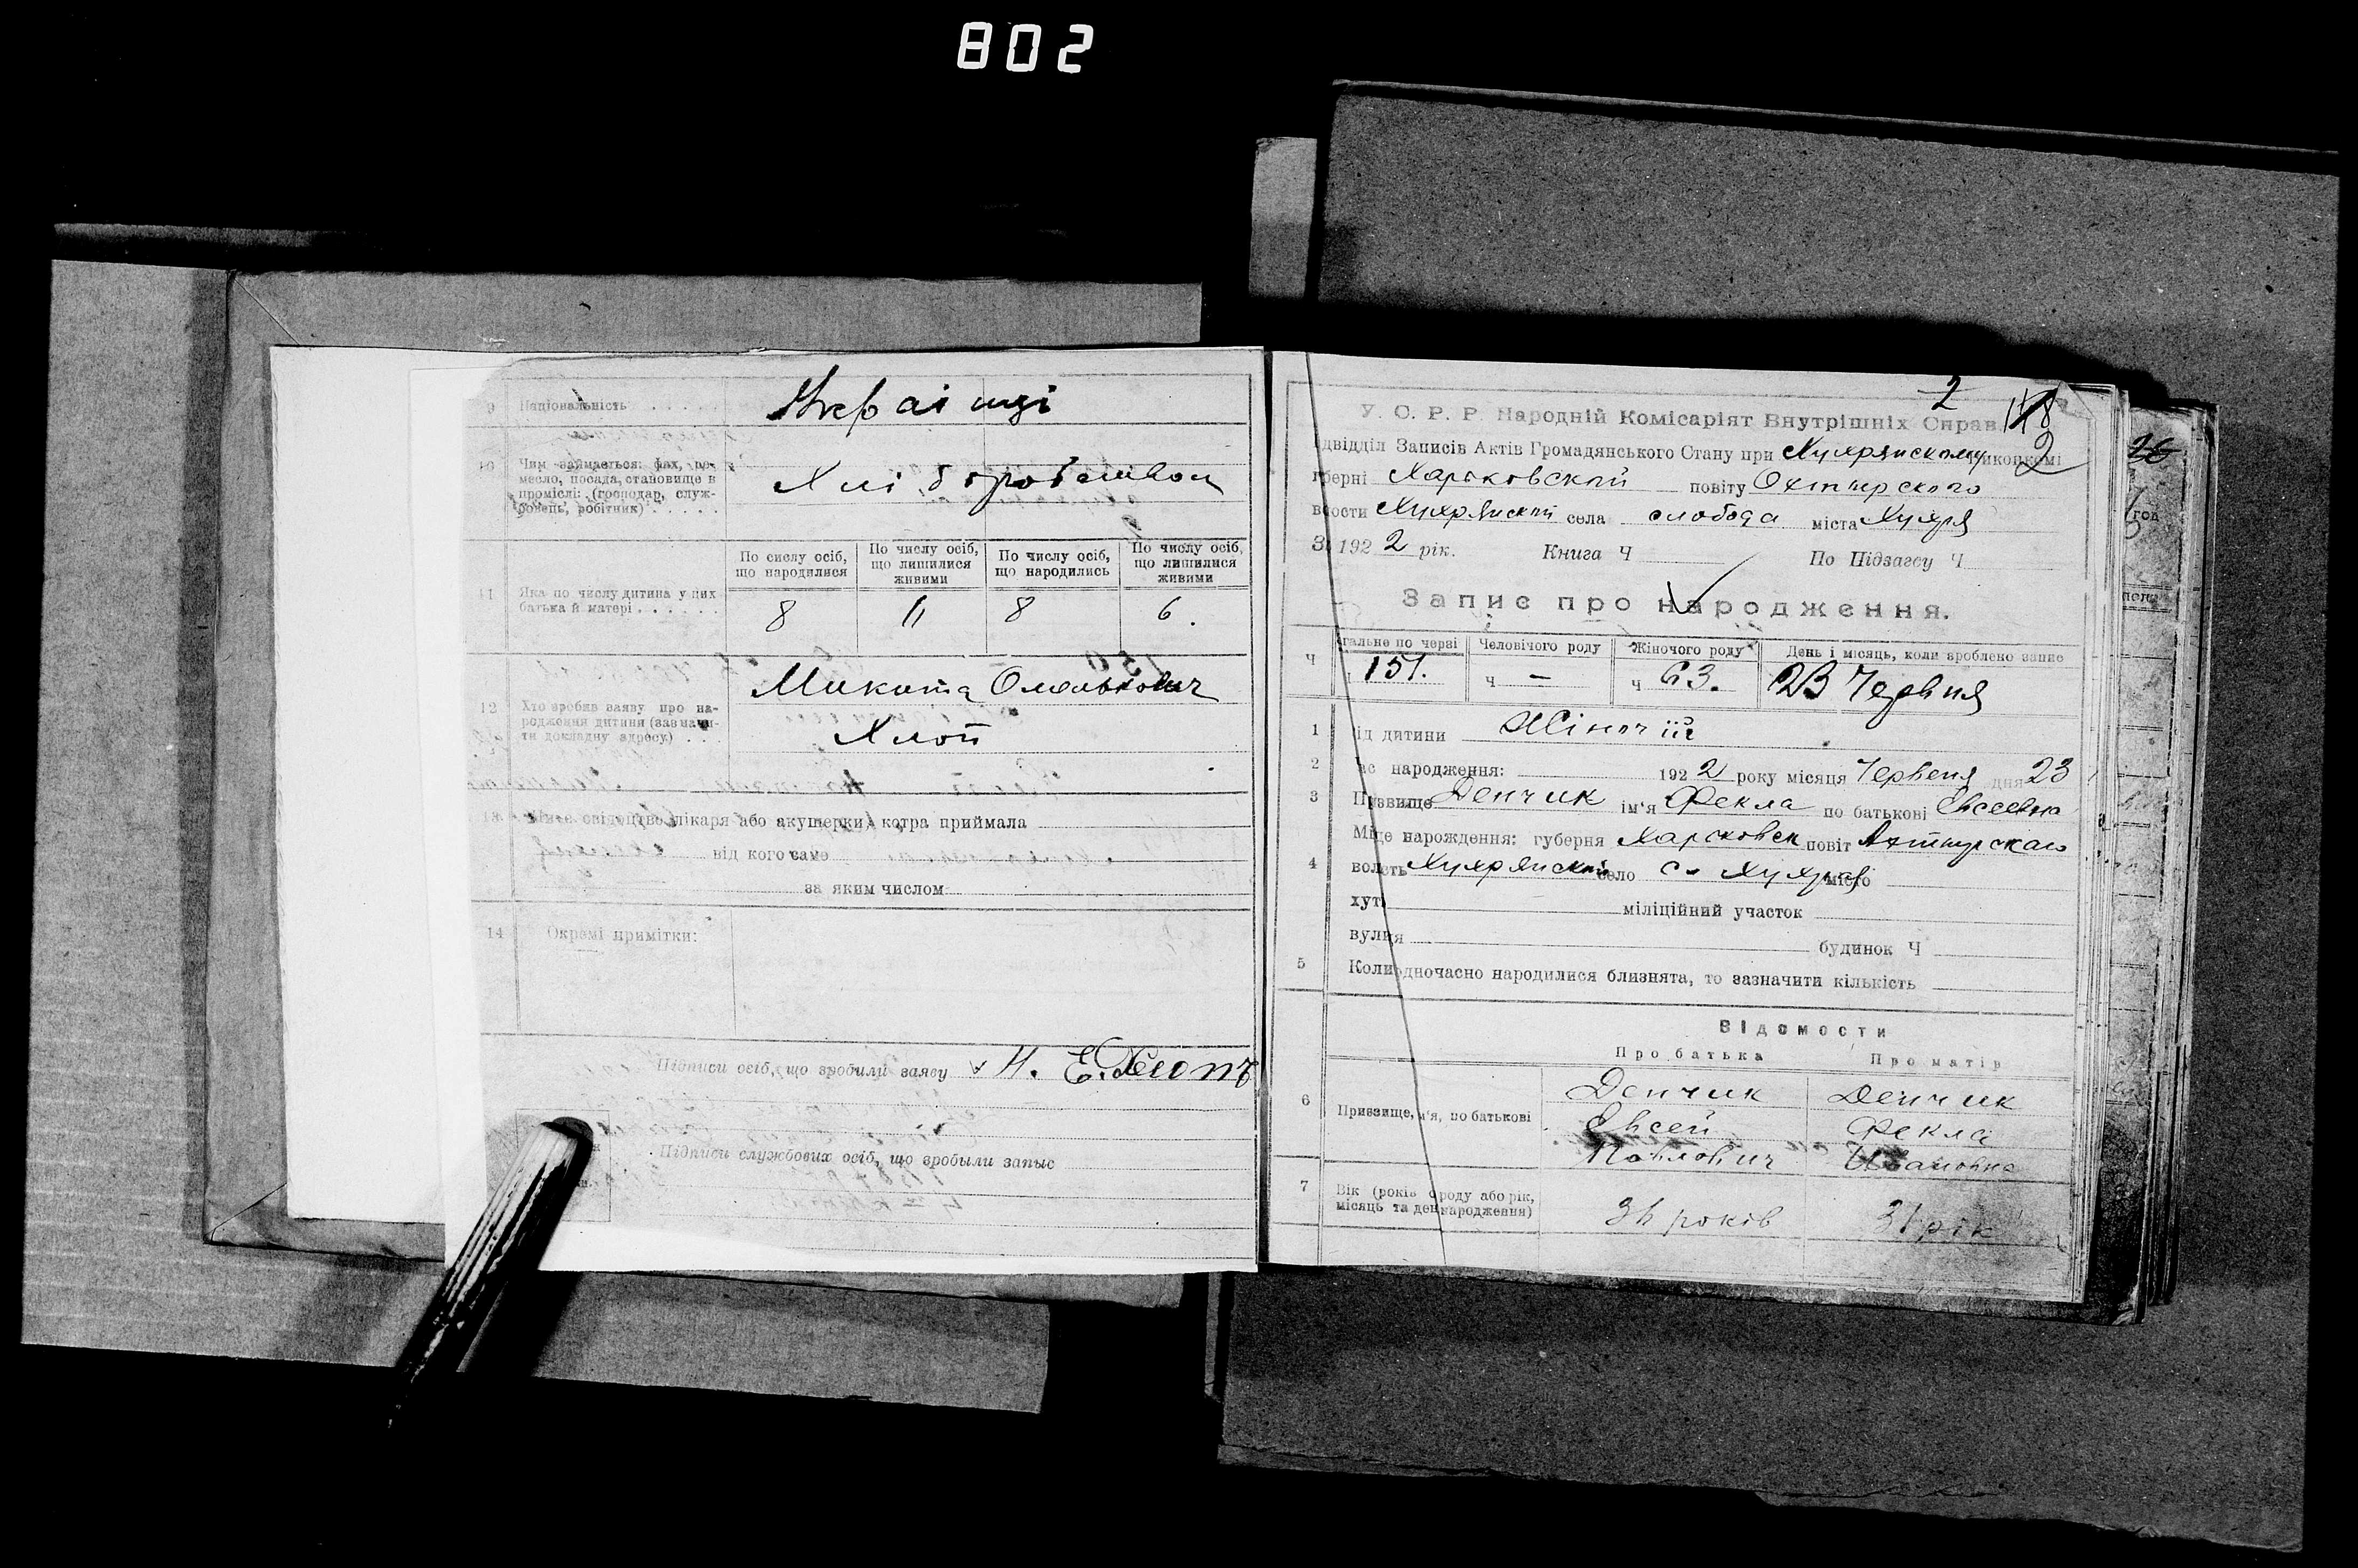 802
9 Національність Украінці
10 Чим займається: фах, ре-
месло, посада, становище в
промислі: (господар, служ-
бовець, робітник) Хліборобством
По числу осіб, що народилися
По числу осіб, що лишилися живими
По числу осіб, що народились
По числу осіб, що лишилися живими
11 Яка по числу дитина у цих
батька й матері 8 8 6.
12 Хто зробив заяву про на-
родження дитини (зазначи-
ти докладну адресу) Микита Омелькович
Хлоп
13 лікаря або акушерки, котра приймала
від кого саме
за яким числом
14 Окремі примітки:
Підписи осіб, що зробили заяву Н. Е. Хлопъ
Підписи службових осіб, що зробыли запыс
2
У. С. Р. Р. Народній Комісаріят Внутрішніх Справ.
2
двідділ Записів Актів Громадянського Стану при Хухрянскому виконкомі
берні Харьковской повіту Охтырского
вости Хухрянской села слобода міста Хухря
З 1922 рік. Книга Ч По Підзагсу Ч
Запис про народження.
гальне по черзі Человічого роду Жіночого роду День і місяць, коли зроблено запис
Ч 151. ч — ч 63. 23 Червня
1 ід дитини Жіночій
2 ас народження: 1922 року місяця Червеня дня 23
3 Призвище Денчик ім'я Фекла по батькові Евсеевна
4 Місце народження: губерня Харьковск повіт Ахтырскаго
волость Хухрянской село с. Хухря місто
хут. міліційний участок
вулиця будинок Ч
5 Коли одночасно народилися близнята, то зазначити кількість
Відомости
Про батька Про матір
6 Призвище, ім'я, по батькові Денчик Денчик
Евсей Фекла
Павлович Ивановна
7 Вік (років з роду або рік,
місяць та день народження) років 31 рік